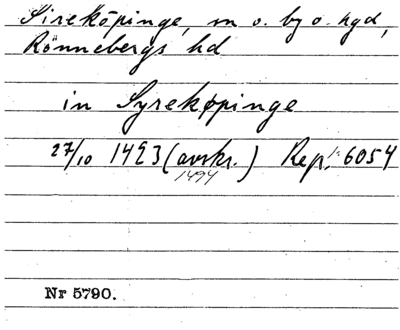 Sireköpinge, sn o. by o. hgd,
Rönnebergs hd
in Syrekøpinge
27/10 1423 (avskr.) Rep. 6054
1494
Nr 5790.